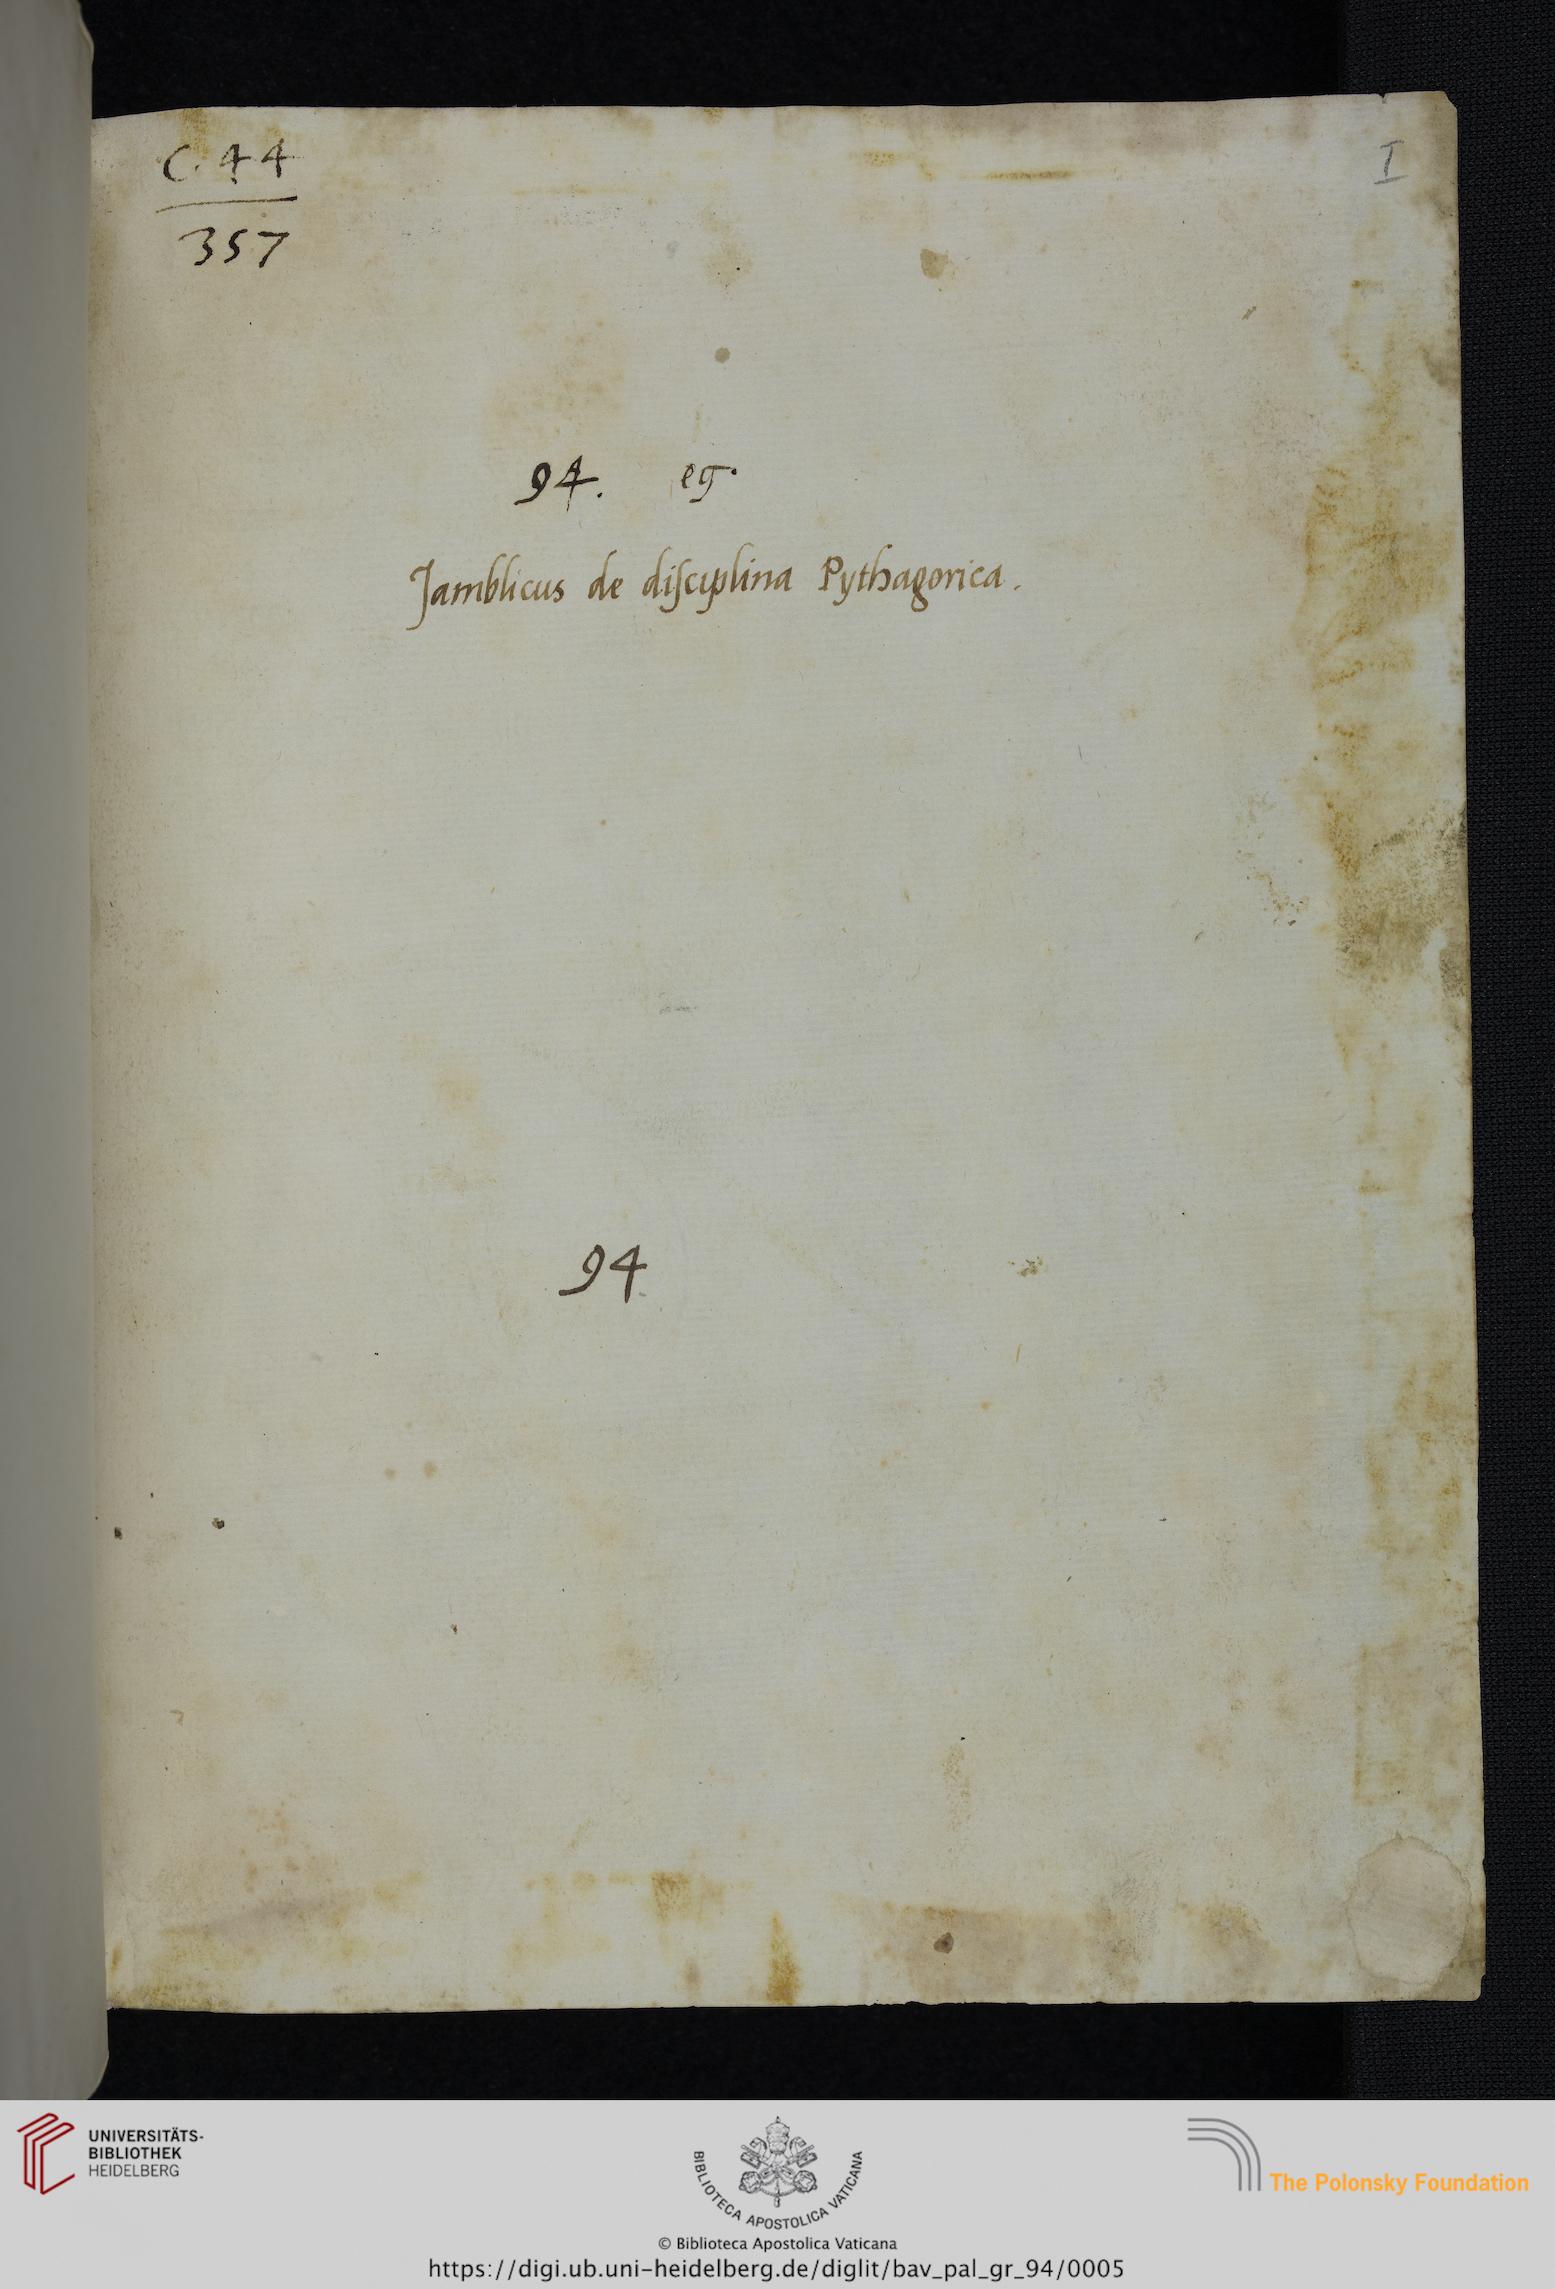 C. 44
357
I
94. eg.
Jamblicus de diſciplina Pythagorica.
94
UNIVERSITÄTS-
BIBLIOTHEK
HEIDELBERG
BIBLIOTECA APOSTOLICA VATICANA
The Polonsky Foundation
© Biblioteca Apostolica Vaticana
https://digi.ub.uni-heidelberg.de/diglit/bav_pal_gr_94/0005